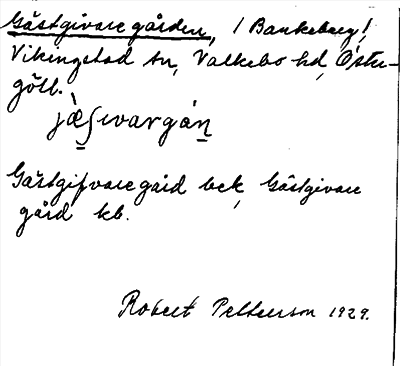 Gästgivaregården, (Bankeberg),
Vikingstad sn, Valkebo hd, Öster-
götl.
jæ̀ʃivargán
Gästgifvaregård bek, Gästgivare
gård kb.
Robert Petterson 1929.